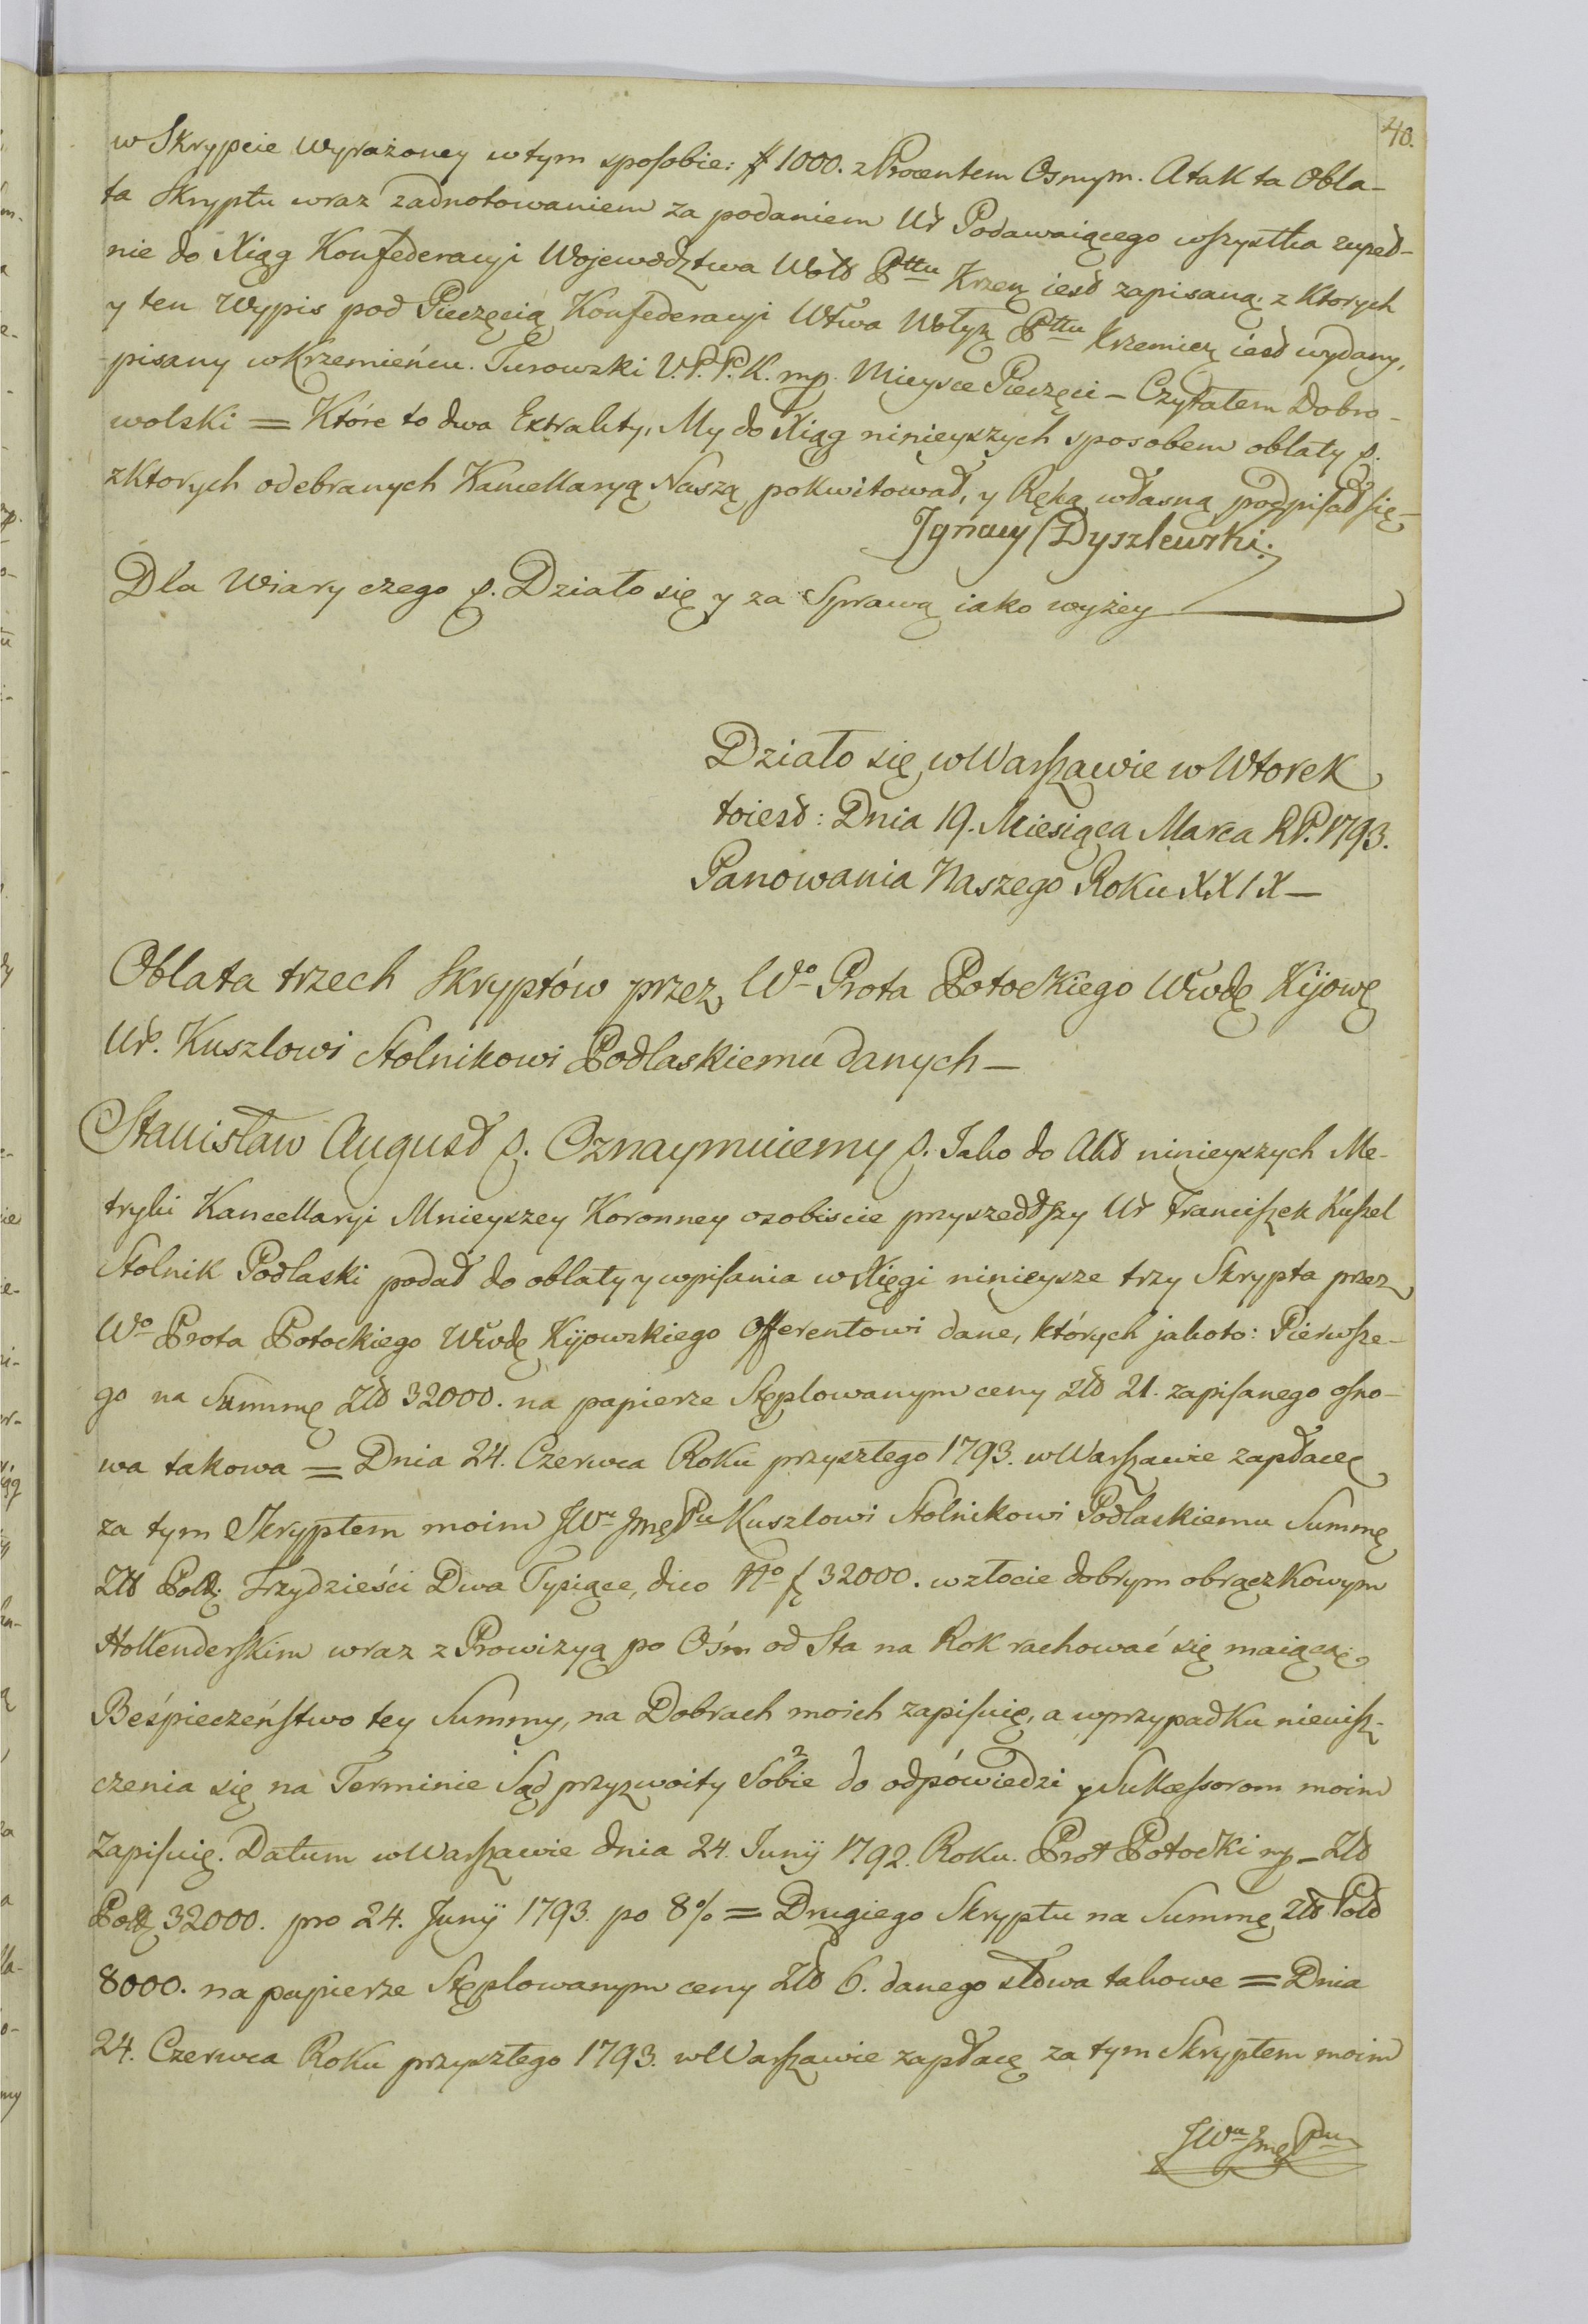 40.
w Skrypcie wyrażoney w tym sposobie: # 1000. z Procentem Osmym. A tak ta Obla-
ta Skryptu wraz z adnotowaniem za podaniem Ur Podawaiącego wszystka zupeł-
nie do Xiąg Konfederacyi Województwa Woł Pttu Krzem iest zapisaną, z Ktorych
y ten Wypis pod Pieczęcią Konfederacyi Wtwa Wołyń Pttu Krzemień iest wydany,
pisany w Krzemieńcu. Turowski V.P.P.K. mp. Mieysce Pieczęci – Czytałem Dobro-
wolski = Które to dwa Extrakty, My do Xiąg ninieyszych sposobem oblaty p.
z Ktorych odebranych Kancellaryą Naszą pokwitował, y Ręką własną podpisał się –
Ignacy Dyszlewski.
Dla Wiary czego p. Działo się y za Sprawą iako wyżey
Działo się w Warszawie w Wtorek
toiest: Dnia 19. Miesiąca Marca R.P. 1793.
Panowania Naszego Roku XXIX –
Oblata trzech Skryptów przez Wo Prota Potockiego Wwdę Kijows
Ur. Kuszlowi Stolnikowi Podlaskiemu danych –
Stanisław August p. Oznaymuiemy p. Iako do Akt ninieyszych Me-
tryki Kancellaryi Mnieyszey Koronney osobiscie przyszedłszy Ur Franciszek Kuszel
Stolnik Podlaski podał do oblaty y wpisania w Xięgi ninieysze trzy Skrypta przez
Wo Prota Potockiego Wwdę Kijowskiego Offerentowi dane, których jakoto: Pierwsze-
go na Summę Złł 32000. na papierze Stęplowanym ceny Złł 21. zapisanego osno-
wa takowa = Dnia 24. Czerwca Roku przyszłego 1793. w Warszawie zapłacę
za tym Skryptem moim JWu Jmę Pu Kuszlowi Stolnikowi Podlaskiemu Summę
Złł Polł: Trzydzieści Dwa Tysiące, dico No f 32000. w złocie dobrym obrączkowym
Hollenderskim wraz z Prowizyą po Ośm od Sta na Rok rachować się maiącą.
Beśpieczeństwo tey Summy, na Dobrach moich zapisuię, a w przypadku nieuisz-
czenia się na Terminie Sąd przyzwoity Sobie do odpówiedzi y Sukcessorom moim
zapisuię. Datum w Warszawie dnia 24. Junij 1792. Roku. Prot Potocki mp – Złł
Polł 32000. pro 24. Junij 1793. po 8% = Drugiego Skryptu na Summę Złł Pol
8000. na papierze Stęplowanym ceny Złł 6. danego słowa takowe = Dnia
24. Czerwca Roku przyszłego 1793. w Warszawie zapłacę za tym Skryptem moim
JWu Jmę Pu